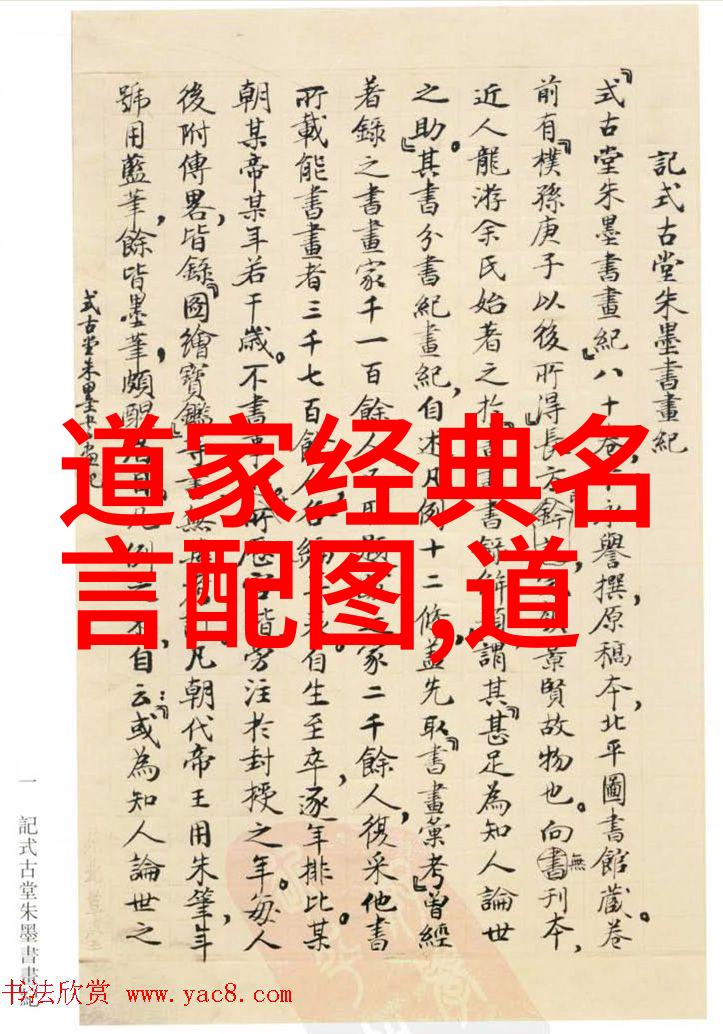 記式古堂朱墨書畫紀
『式古堂朱墨書畫紀』八十卷，卞永譽撰，原稿本，北平圖書館藏。卷
前有『樸孫庚子以後所得』長方
景賢故物也。向無書刊本，
近人龍游余氏始著之於
謂其『甚足為知人論世
之助』。其書分書紀畫紀，自述凡例十二條，蓋先取『書畫彙考』曾經
著錄之書畫家千一百餘人，
家二千餘人，復采他書
所載能書畫者三千七百餘人，
自生至卒，逐年排比。某
朝某帝某年若干歲。不書事
所歷官皆旁注於封授之年。每人
後附傳畧，皆錄『圖繪寶鑑』等書，無
凡朝代帝王用朱筆，年
號用藍筆，餘皆墨筆，頗醒
目。凡例
自云：『或為知人論世之
式古堂朱墨書畫記
一 記式古堂朱墨書畫紀
道家经典名
言配图,道
书法欣赏 www.yac8.com